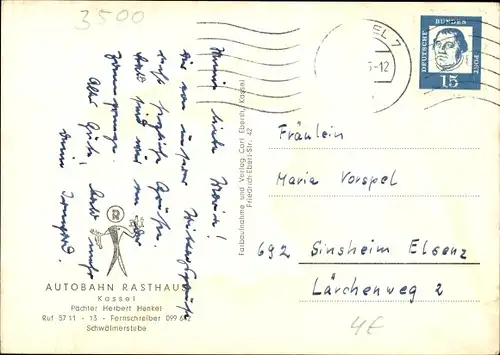 3500
Meine liebe Maria!
von unserer
recht herzliche Grüße.
bald sind wir
Alles Gute!
Deine Irmgard.
AUTOBAHN RASTHAUS
Kassel
Pächter Herbert Henkel
Ruf 57 11 - 13 - Fernschreiber 099 6
Schwälmerstube
Farbaufnahme und Verlag: Carl Eberth, Kassel
Friedrich-Ebert-Str. 42
EL 7
-12
DEUTSCHE BUNDES POST
15
Fräulein
Maria Vorspel
692 Sinsheim Elsenz
Lärchenweg 2
4€